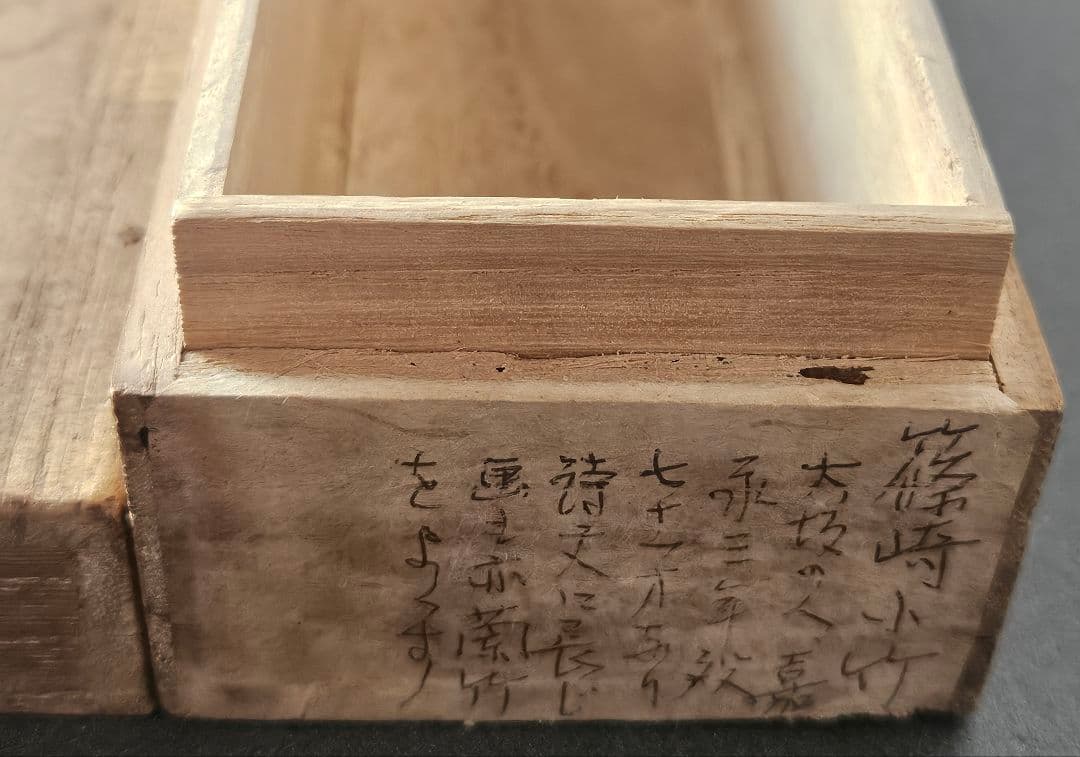 篠崎小竹
大坂の人、嘉
永三年歿
七十一才なり
詩文に長じ
画も亦蘭竹
をよくす